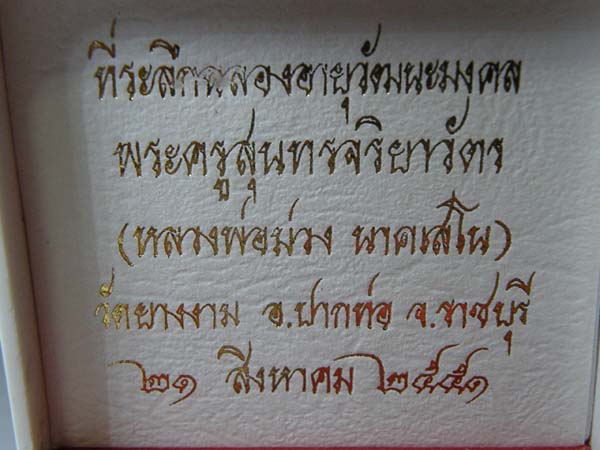 ที่ระลึกฉลองอายุวัฒนะมงคล
พระครูสุนทรจริยาวัตร
(หลวงพ่อม่วง นาคเสโน)
วัดยางงาม อ.ปากท่อ จ.ราชบุรี
๒๑ สิงหาคม ๒๕๕๑